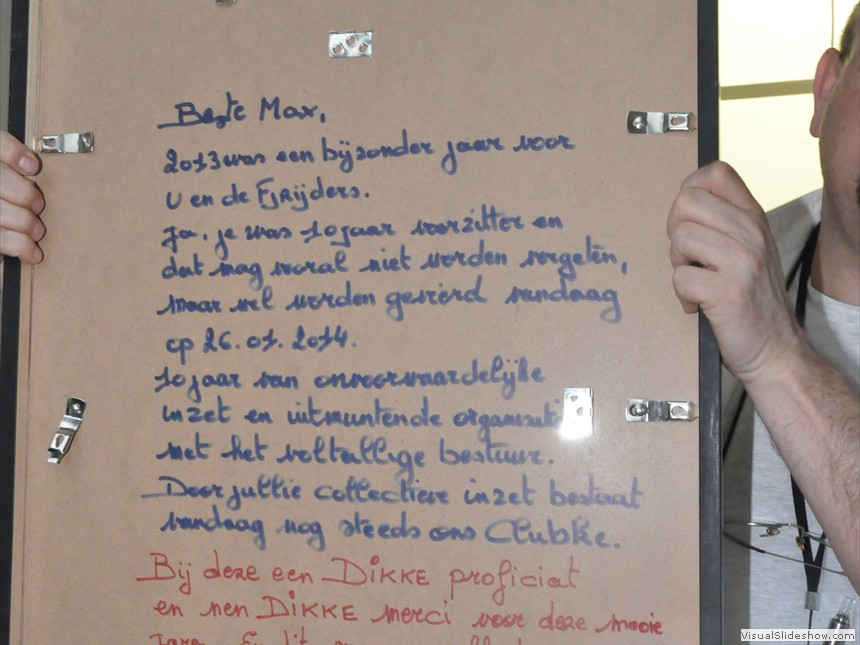 Beste Max,
2013 was een bijzonder jaar voor
U en de FJRijders.
Ja, je was 10 jaar voorzitter en
dat mag vooral niet worden vergeten,
maar wel worden gevierd vandaag
op 26.01.2014.
10 jaar van onvoorwaardelijke
inzet en uitmuntende organisatie
met het voltallige bestuur.
Door jullie collectieve inzet bestaat
vandaag nog steeds ons Clubke.
Bij deze een DIKKE proficiat
en nen DIKKE merci voor deze mooie
VisualSlideshow.com